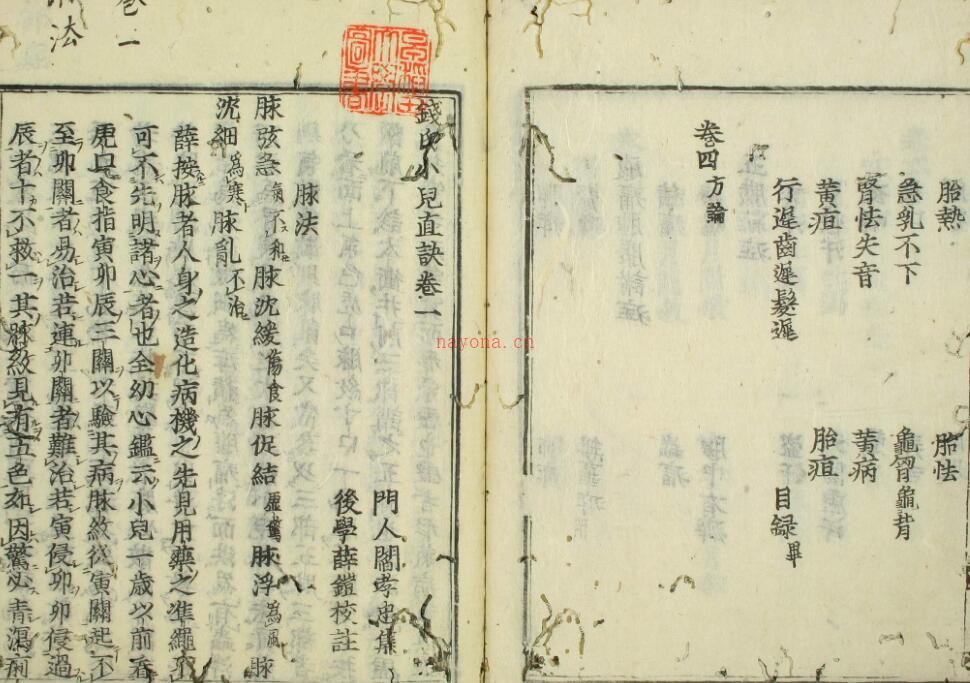 胎熱　胎怯
急乳不下　龜胷龜背
腎怯失音　黃病
黃疸　胎疸
行遲齒遲髮遲　目録畢
卷四方論
錢氏小兒直訣卷一
門人閻孝忠集
後學薛鎧校註
脉法
脉弦急氣不和脉沈緩傷食脉促結虛驚脉浮為風脉
沈細為寒脉亂不治
薛按脉者人身之造化病機之先見用藥之準繩不
可不先明諸心者也全幼心鑑云小兒一歲以前看
虎口食指寅卯辰三關以驗其病脉紋從寅關起不
至卯關者易治若連卯關者難治若寅侵卯卯侵過
辰者十不救一其脉紋見有五色如因驚必青瀉痢
卷一
法
nayona.cn